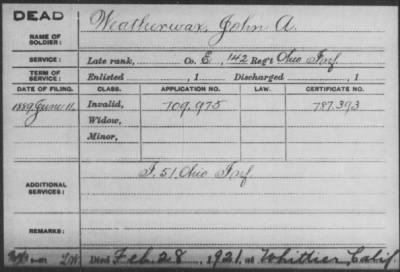 DEAD
NAME OF SOLDIER: Weatherwax, John A.
SERVICE: Late rank, Co. E, 142 Reg't Ohio Inf
TERM OF SERVICE: Enlisted , 1 Discharged , 1
DATE OF FILING. CLASS. APPLICATION NO. LAW. CERTIFICATE NO.
1889 June 11. Invalid, 709.975 787.393
Widow,
Minor,
ADDITIONAL SERVICES: F. 51. Ohio Inf
REMARKS:
Died Feb. 28, 1921, at Whittier, Calif.